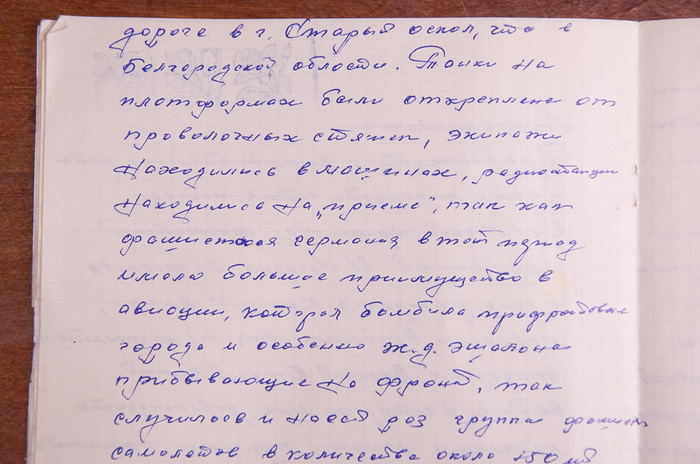 дороге в г. Старый оскол, что в
Белгородской области. Танки на
платформах были откреплены от
проволочных стяжек, экипажи
находились в машинах, радиостанции
находились на "приеме", так как
фашистская германия в тот период
имела большое приимущество в
авиации, которая бомбила прифронтовые
города и особенно ж.д. эшалоны
прибывающие на фронт, так
случилось и на этот раз группа фашист
самолетов в количестве около 150 шт